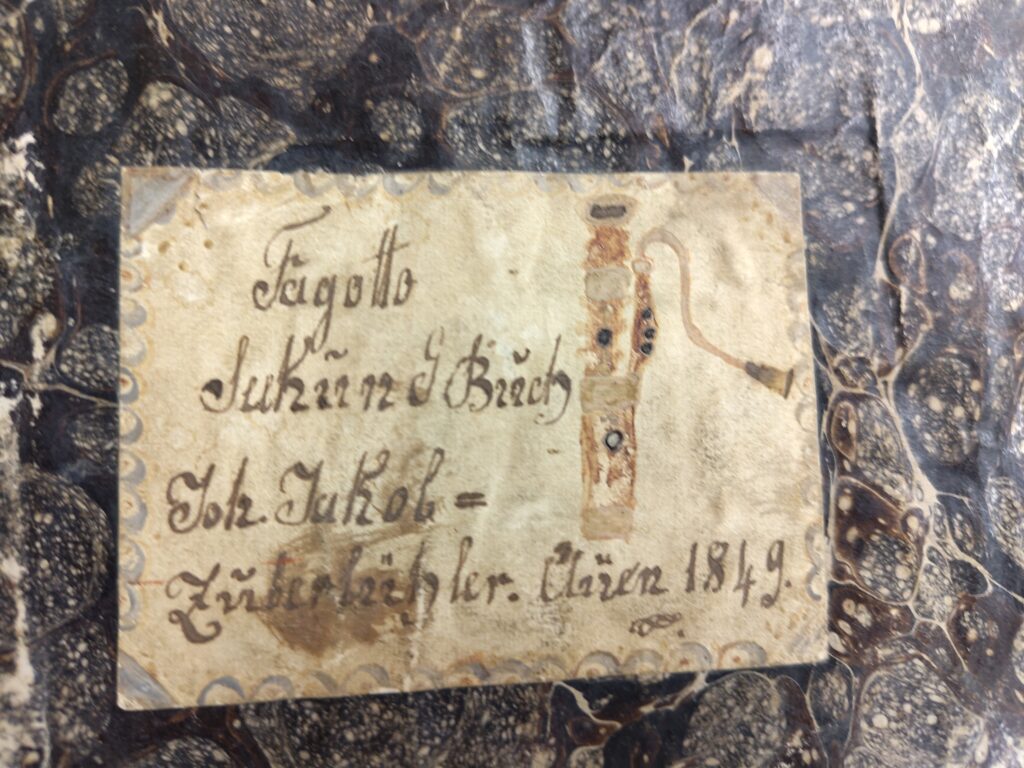 Fagotto
Sekŭnd Bŭch
Joh. Jakob=
Zuberbühler. Aŭen 1849.